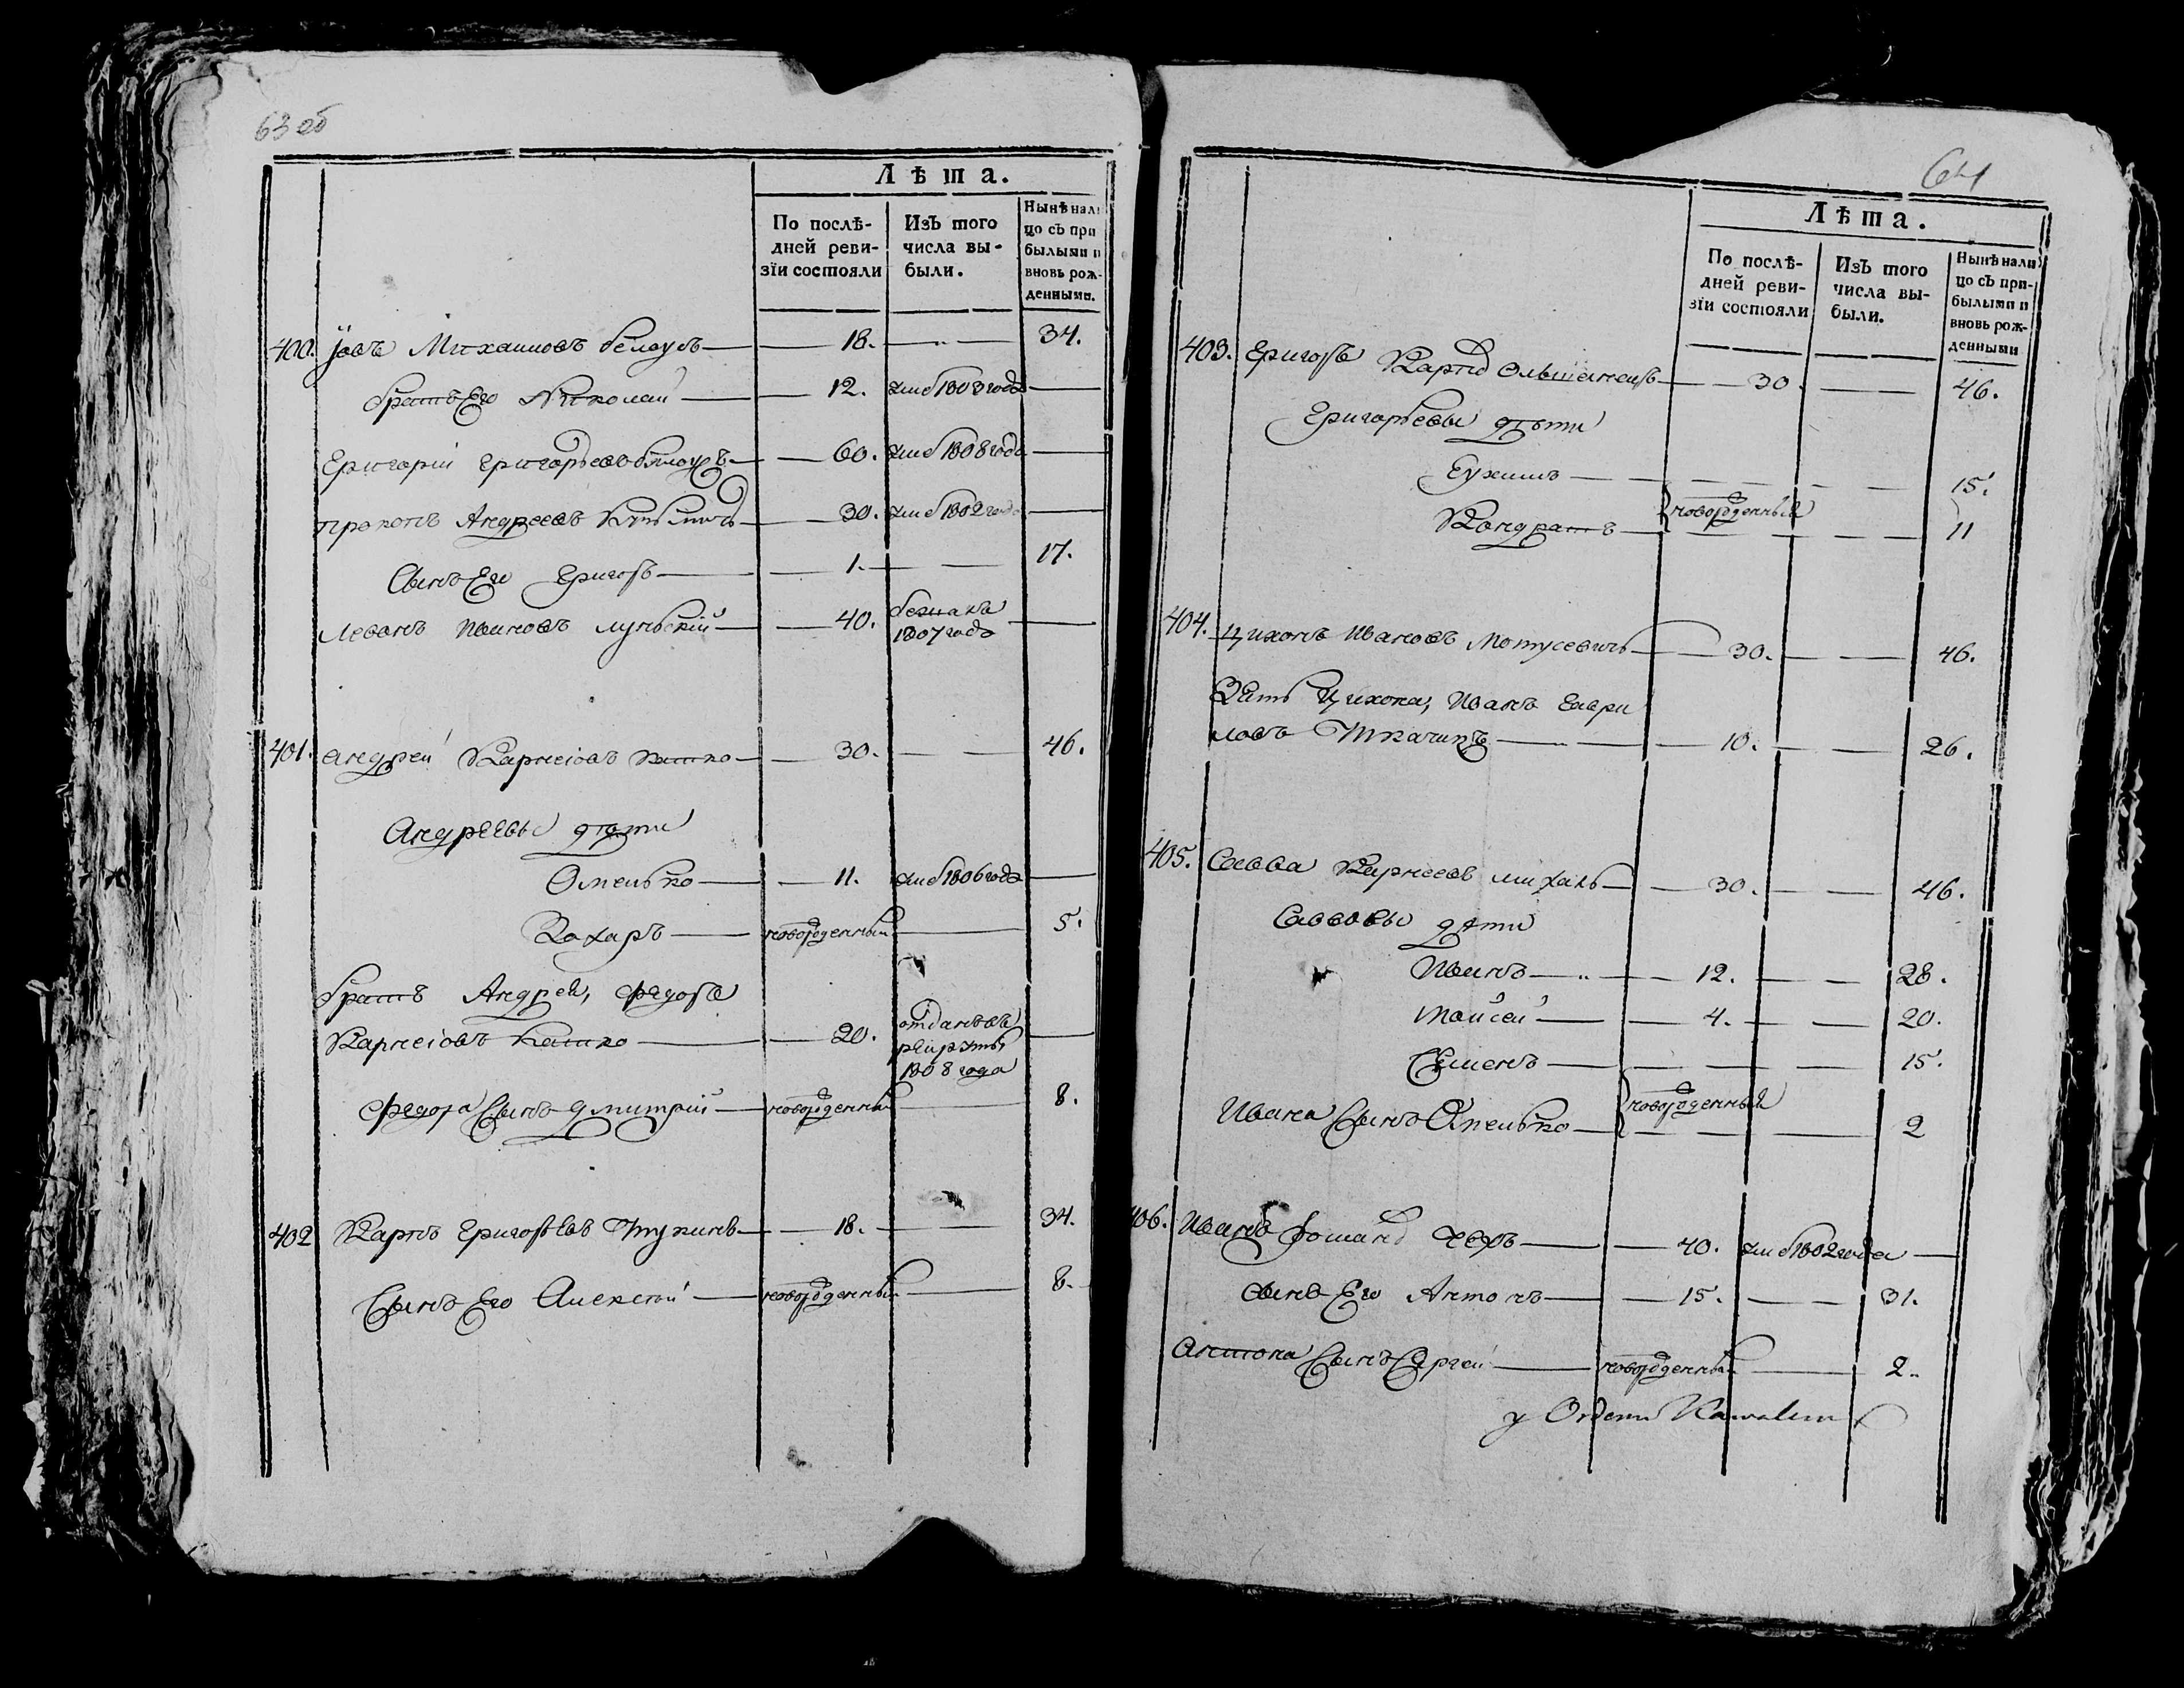 63 об
Лѣта.
По послѣ-
дней реви-
зїи состояли
Изъ того
числа вы-
были.
Нынѣ нали
цо съ при
былыми и
вновь рож-
денными.
400. Іовъ Михаиловъ белоусъ 18. 34.
братъ Его Николай 12. умеръ 1808 года
Григорій григорьевъ бялоусъ 60. умеръ 1808 года
прокопъ Андреевъ 30. умеръ 1802 года
Сынъ Его Григоръ 1. 17.
Левонъ Ивановъ 40. бежалъ
1807 года
401. Андрей Карнеіовъ Кашко 30. 46.
Андреевы дѣти
Омелько 11. умеръ 1806 года
Захаръ новорожденный 5.
братъ Андрея, Фядоръ
Карнеіовъ Кашко 20. отданъ въ
рекруты
1808 года
Фядора Сынъ дмитрий новорожденный 8.
402 Карпъ Григорьевъ 18. 34.
Сынъ Его Алексѣй новорожденный 8.
64
Лѣта.
По послѣ-
дней реви-
зїи состояли
Изъ того
числа вы-
были.
Нынѣ нали
цо съ при-
былыми и
вновь рож-
денными
403. Григоръ Карпов Ольшанецъ 30. 46.
Григорьевы дѣти
Еухимъ 15.
новорожденный
Кондратъ 11
404. Цихонъ Ивановъ Мотусевичъ 30. 46.
Зять Цихона, Иванъ Гаври
ловъ Ткачикъ 10. 26.
405. Савва Карнеевъ михаль 30. 46.
Саввовы дѣти
Иванъ 12. 28.
Мойсей 4. 20.
Семенъ 15.
новорожденный
Ивана Сынъ Омелько 2
406. Иванъ Романов Чехъ 40. умеръ 1802 года
сынъ Его Антонъ 15. 31.
Антона Сынъ Сергей новорожденный 2.
y Orderu Kawaler